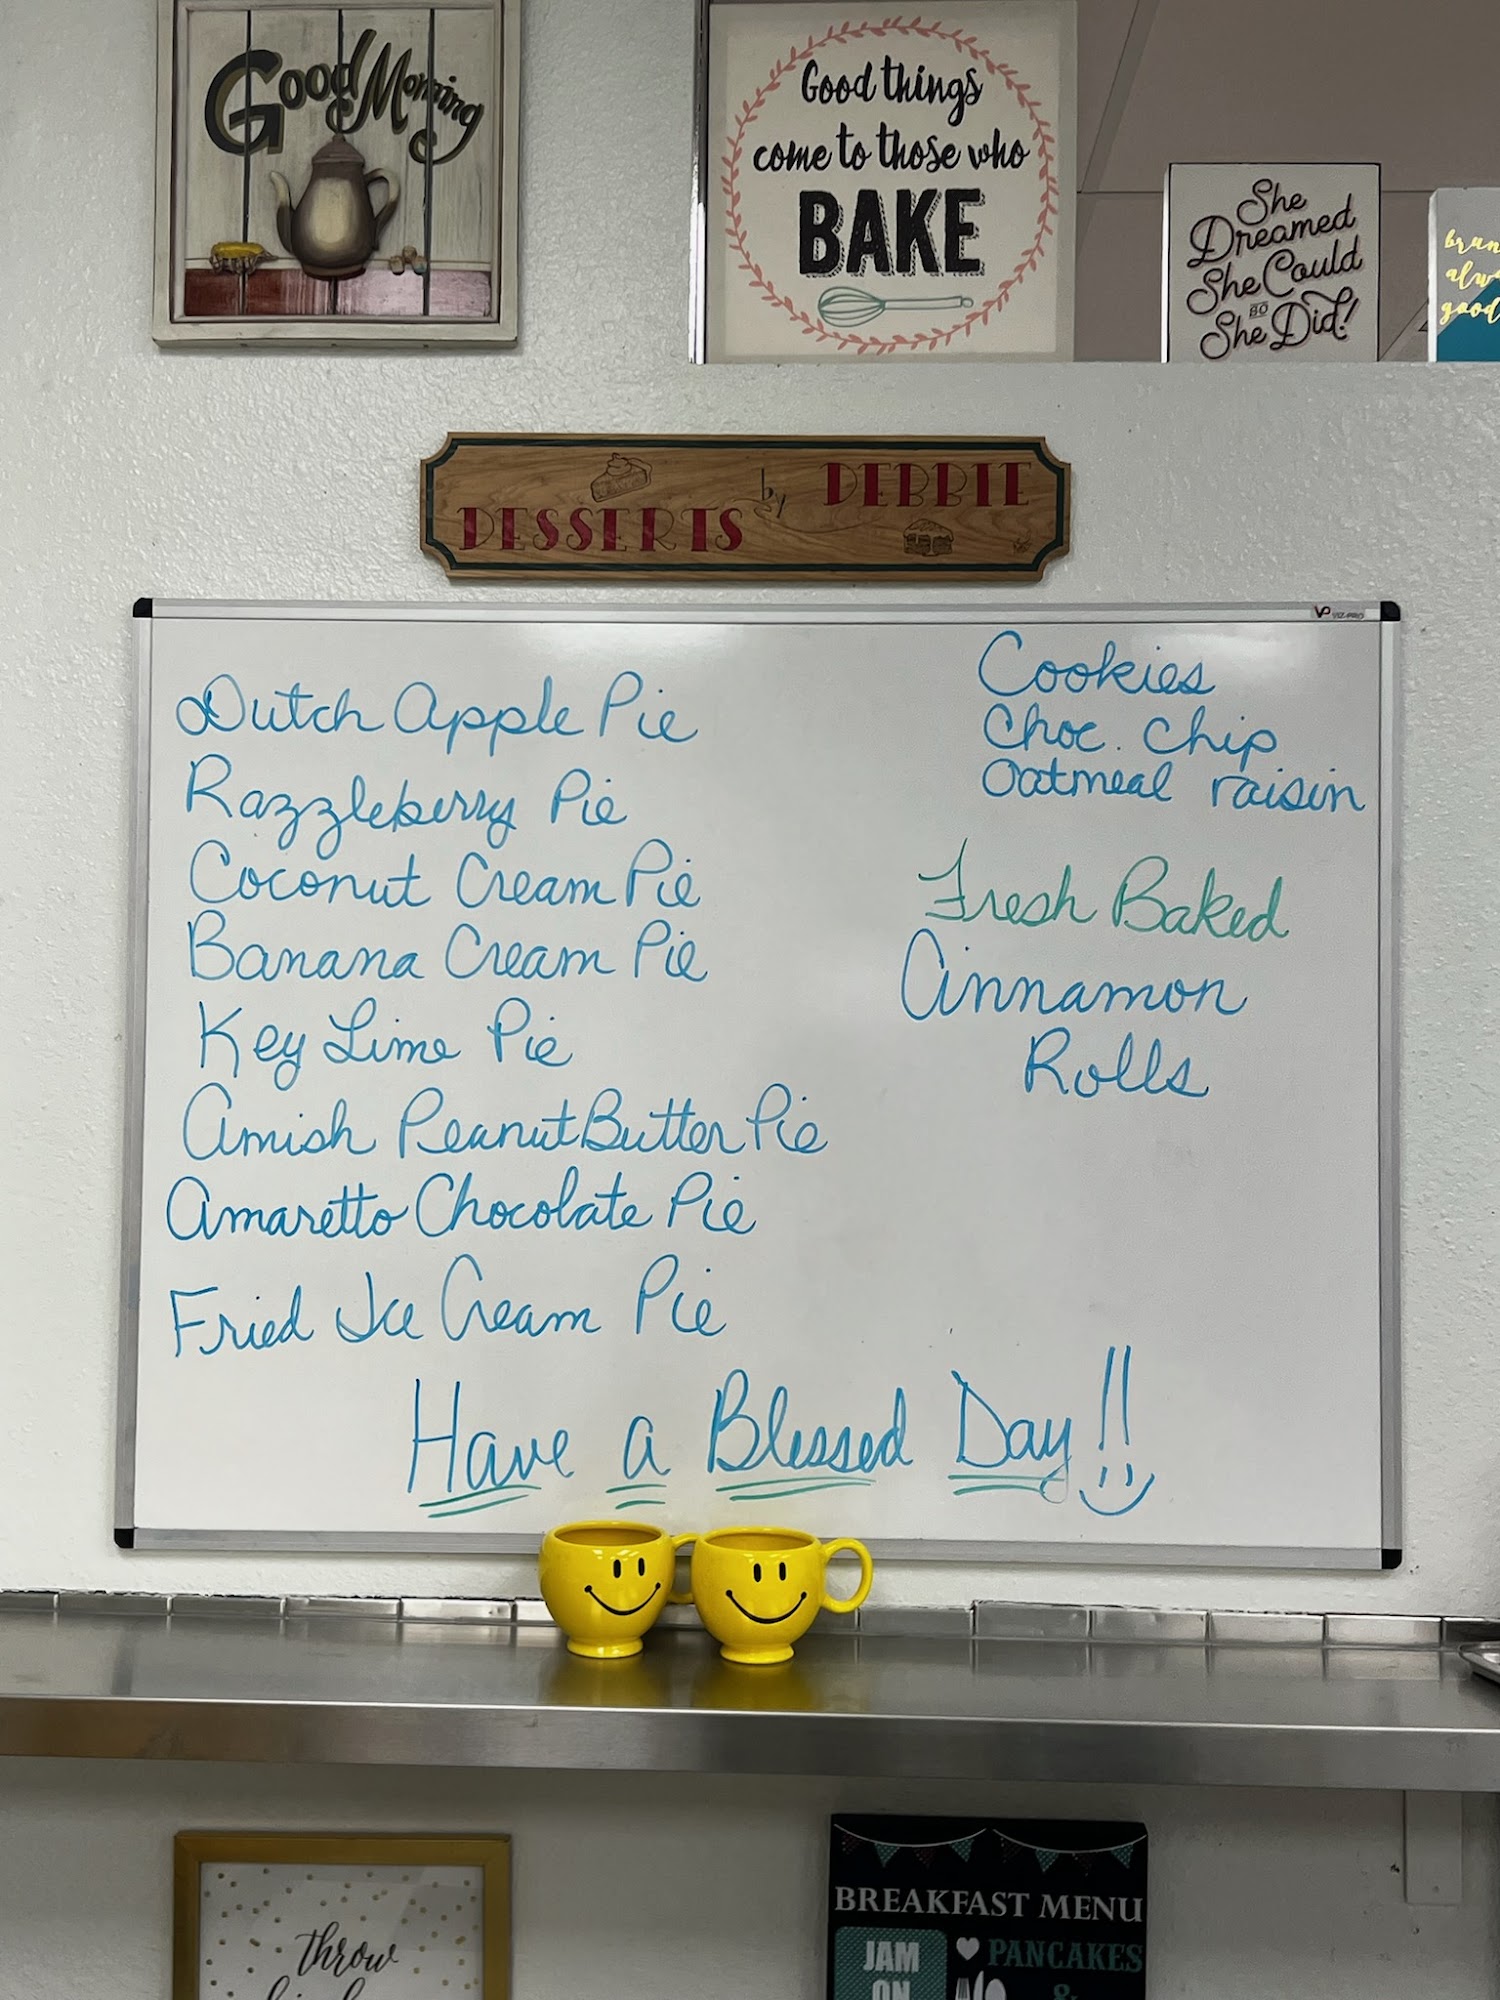 Good Morning
Good things
come to those who
BAKE
She
Dreamed
She Could
so
She Did!
good
DESSERTS by DEBBIE
VIZ-PRO
Dutch Apple Pie
Razzleberry Pie
Coconut Cream Pie
Banana Cream Pie
Key Lime Pie
Amish Peanut Butter Pie
Amaretto Chocolate Pie
Fried Ice Cream Pie
Cookies
Choc. Chip
Oatmeal raisin
Fresh Baked
Cinnamon
Rolls
Have a Blessed Day!!
throw
BREAKFAST MENU
JAM
ON
PANCAKES
&